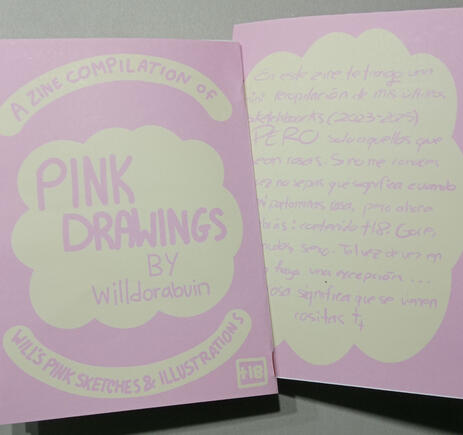 A ZINE COMPILATION OF
PINK
DRAWINGS
BY
Willdorabuin
WILL'S PINK SKETCHES & ILLUSTRATIONS
+18
En este zine te traigo una
recopilación de mis últimos
sketchbooks (2023-2025)
PERO solo aquellos que
sean rosas. Si no me conoces
no sepas que significa cuando
rosa, pero ahora
contenido +18. Gore,
sexo. Tal vez de vez en
haya una excepción...
rosa significa que se vienen
cositas